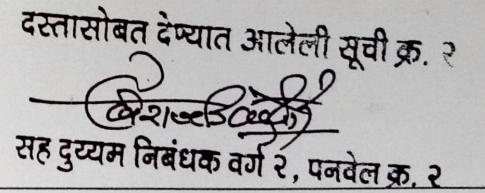 दस्तासोबत देण्यात आलेली सूची क्र. २
सह दुय्यम निबंधक वर्ग २, पनवेल क्र. २